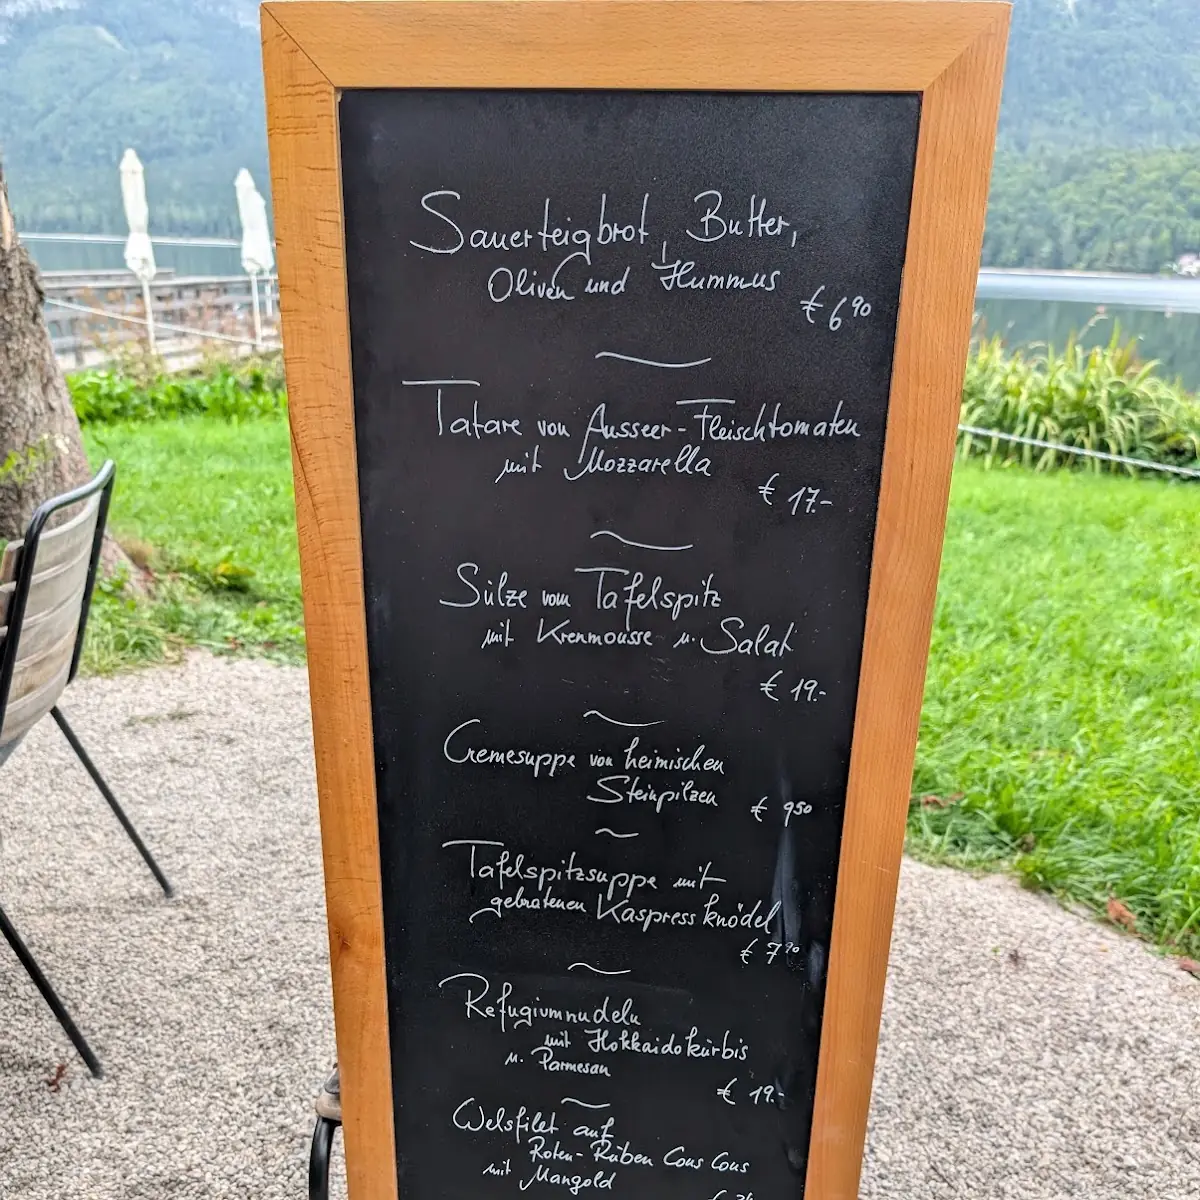 Sauerteigbrot, Butter,
Oliven und Hummus
€ 6 90
Tatare von Ausseer-Fleischtomaten
mit Mozzarella
€ 17.-
Sülze vom Tafelspitz
mit Krenmousse u. Salat
€ 19.-
Cremesuppe von heimischen
Steinpilzen
€ 9 50
Tafelspitzsuppe mit
gebratenen Kaspressknödel
€ 7 90
Refugiumnudeln
mit Hokkaidokürbis
u. Parmesan
€ 19.-
Welsfilet auf
Roten-Rüben Cous Cous
mit Mangold
€